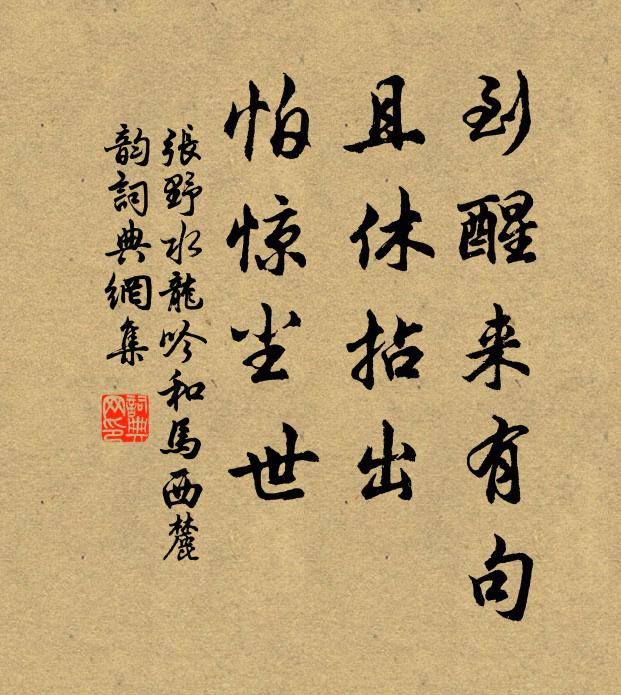 到醒来有句
且休拈出
怕惊尘世
張野水龍吟和馬西麓
韵詞典網集
詞典
网印